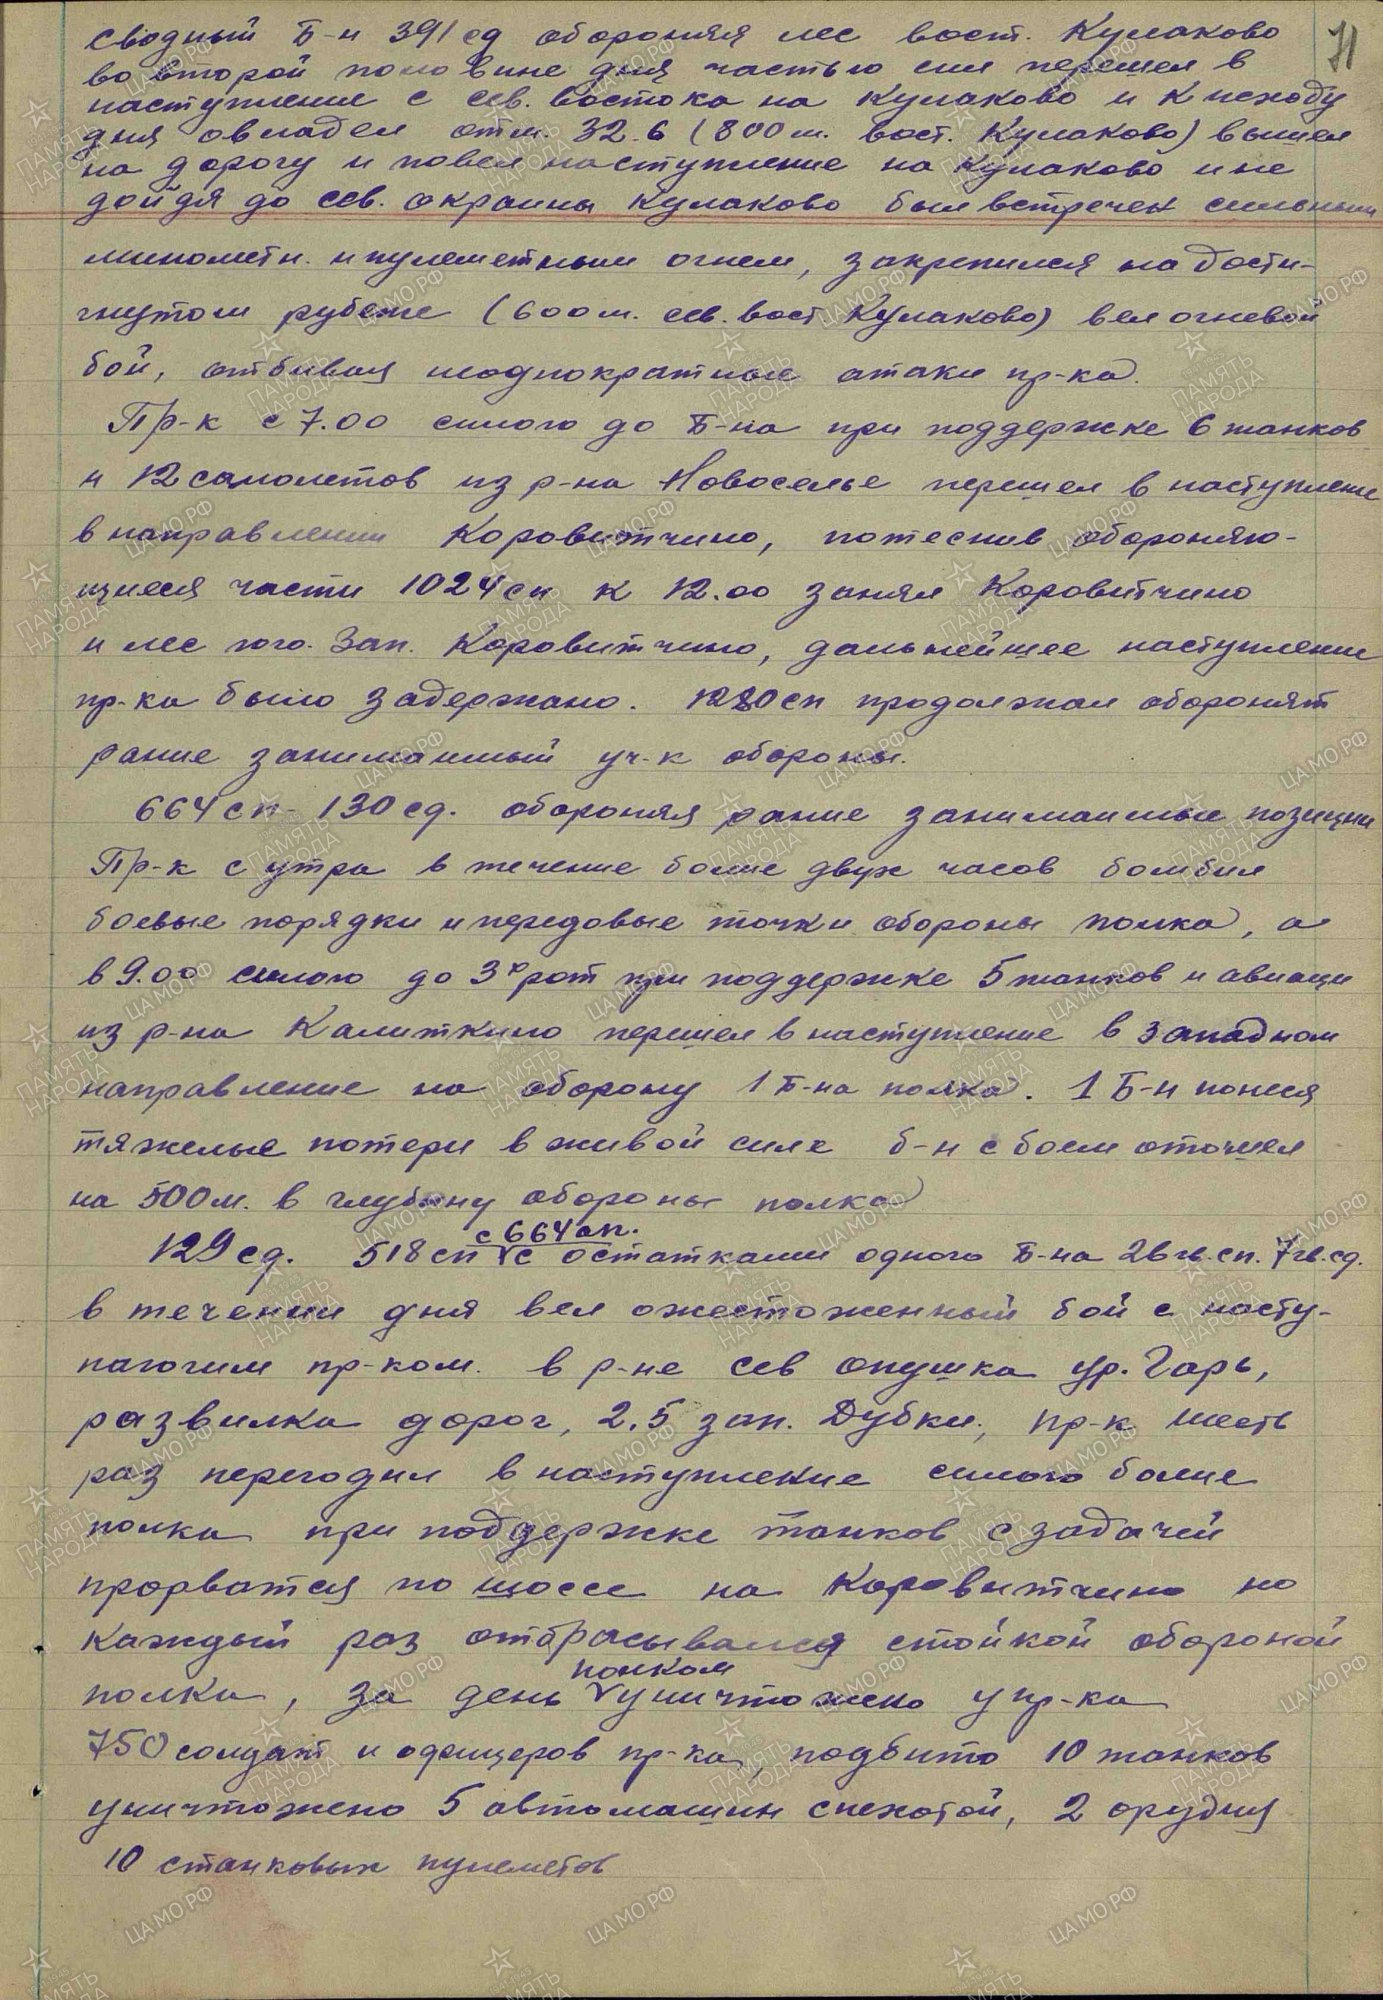 71
сводный Б-н 391 сд обороняя лес вост. Кулаково
во второй половине дня частью сил перешел в
наступление с сев. востока на Кулаково и к исходу
дня овладел отм. 32.6 (800 м. вост. Кулаково) вышел
на дорогу и повел наступление на Кулаково и не
дойдя до сев. окраины Кулаково был встречен сильным
минометн. и пулеметным огнем, закрепился на дости-
гнутом рубеже (600 м. сев. вост Кулаково) вел огневой
бой, отбивая неоднократные атаки пр-ка.
Пр-к с 7.00 силою до Б-на при поддержке 6 танков
и 12 самолетов из р-на Новоселье перешел в наступление
в направлении Коровитчино, потеснив обороняю-
щиеся части 1024 сп к 12.00 занял Коровитчино
и лес юго. зап. Коровитчино, дальнейшее наступление
пр-ка было задержано. 1280 сп продолжал оборонят
ранее занимаемый уч-к обороны.
664 сп - 130 сд. обороняя ранее занимаемые позиции
Пр-к с утра в течение более двух часов бомбил
боевые порядки и передовые точки обороны полка, а
в 9.00 силою до 3х рот при поддержке 5 танков и авиаци
из р-на Калиткино перешел в наступление в западном
направление на оборону 1 Б-на полка. 1 Б-н понеся
тяжелые потери в живой силе б-н с боем отошел
на 500 м. в глубину обороны полка
с 664 ап.
129 сд. 518 сп V с остатками одного Б-на 26 гв. сп. 7 гв. сд.
в течении дня вел ожесточенный бой с насту-
пающим пр-ком. в р-не сев опушка ур. Гарь,
развилка дорог, 2,5 зап. Дубки, пр-к шесть
раз переходил в наступление силою более
полка при поддержке танков с задачей
прорватся по шоссе на Коровитчино но
каждый раз отбрасывался стойкой обороной
полком
полка, за день V уничтожено у пр-ка
750 солдат и офицеров пр-ка, подбито 10 танков
уничтожено 5 автомашин с пехотой, 2 орудия
10 станковых пулеметов
ПАМЯТЬ НАРОДА
ЦАМО.РФ